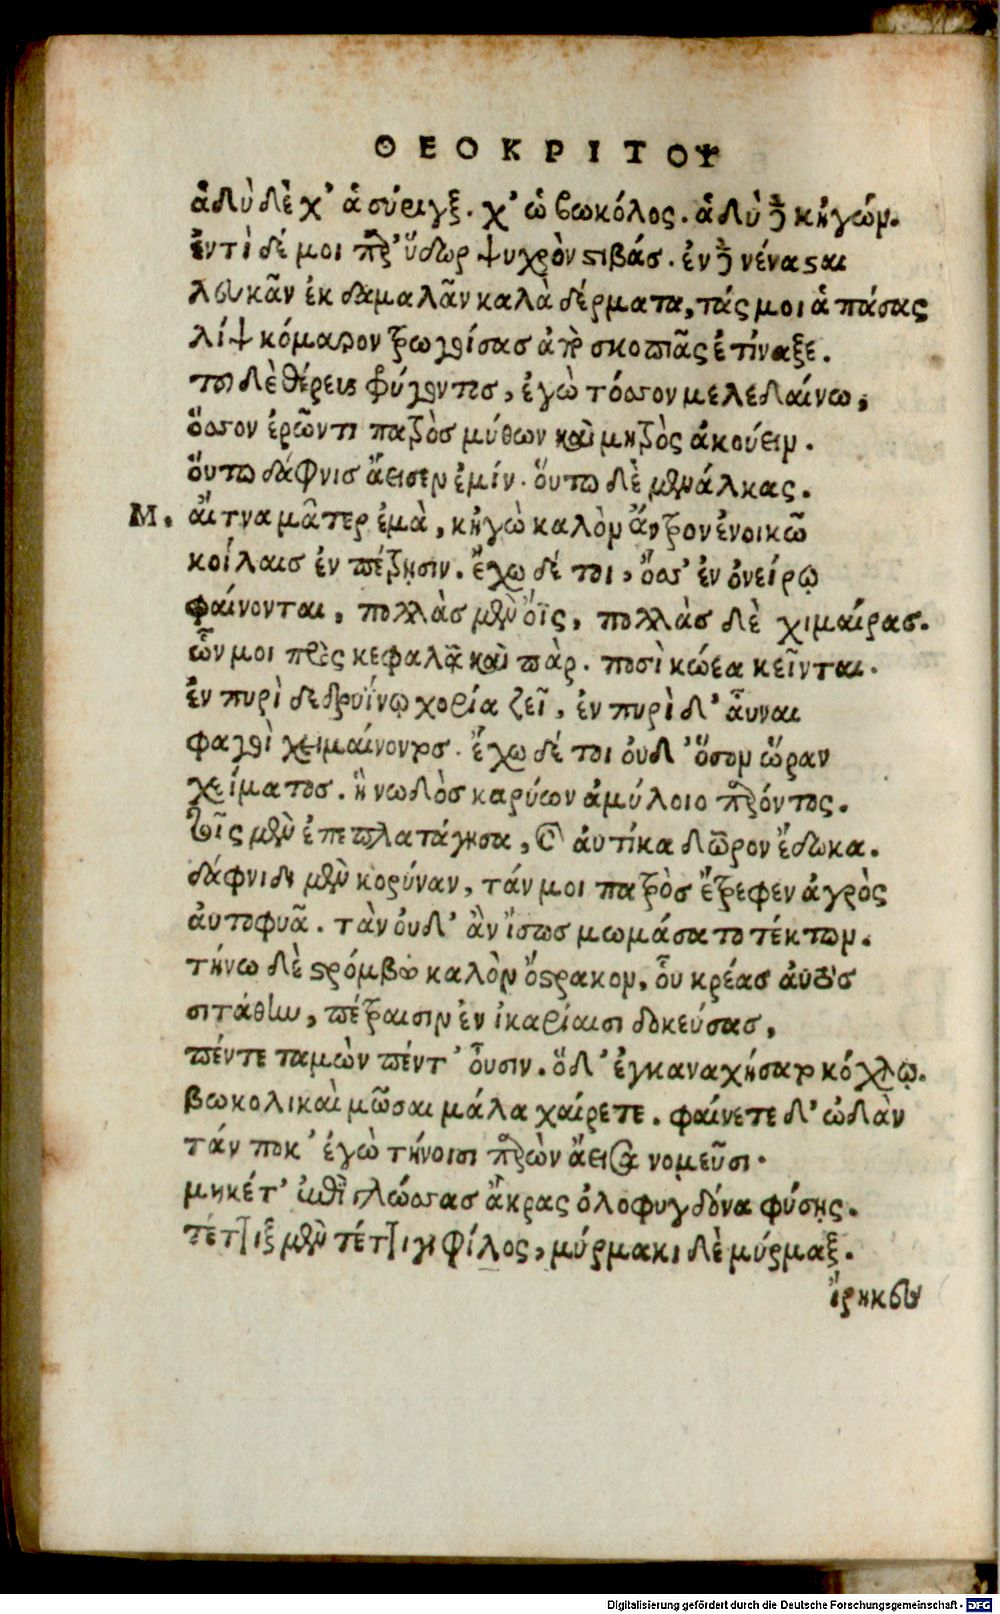 ΘΕΟΚΡΙΤΟΥ
ἁδὺ δὲ χ’ ἁ σύριγξ. χ’ ὠ βωκόλος. ἁδὺ δὲ κἠγών.
ἐντὶ δέ μοι παρ’ ὕδωρ ψυχρὸν στιβάς. ἐν δὲ νένασται
λευκᾶν ἐκ δαμαλᾶν καλὰ δέρματα, τάς μοι ἁ πάσας
λίψ κόμαρον τρωγοίσας ἀπὸ σκοπιᾶς ἐτίναξε.
τοῦ δὲ θέρευς φρύγοντος, ἐγὼ τόσσον μελεδαίνω,
ὅσσον ἐρῶντι πατρὸς μύθων καὶ μητρὸς ἀκούειν.
οὕτω δάφνις ἄεισεν ἐμίν. οὕτω δὲ μενάλκας.
Μ. αἴτνα μᾶτερ ἐμὰ, κἠγὼ καλὸν ἄντρον ἐνοικῶ
κοίλαις ἐν πέτρῃσιν. ἔχω δέ τοι, ὅσσ’ ἐν ὀνείρῳ
φαίνονται, πολλὰς μὲν ὄϊς, πολλὰς δὲ χιμαίρας.
ὧν μοι πρὸς κεφαλᾷ καὶ πὰρ. ποσὶ κώεα κεῖνται.
ἐν πυρὶ δὲ δρυΐνῳ χορία ζεῖ, ἐν πυρὶ δ’ αὖναι
φαγοὶ χειμαίνοντος. ἔχω δέ τοι οὐδ’ ὅσον ὥραν
χείματος. ἢ νωδὸς καρύων ἀμύλοιο παρόντος.
τοῖς μὲν ἐπεπλατάγησα, καὶ αὐτίκα δῶρον ἔδωκα.
δάφνιδι μὲν κορύναν, τάν μοι πατρὸς ἔτρεφεν ἀγρὸς
αὐτοφυᾶ. τὰν οὐδ’ ἂν ἴσως μωμάσατο τέκτων.
τήνω δὲ στρόμβω καλὸν ὄστρακον, οὗ κρέας αὐτὸς
σιτάθην, πέτραισιν ἐν ἱκαρίαισι δοκεύσας,
πέντε ταμὼν πέντ’ οὖσιν. ὅδ’ ἐγκαναχήσατο κόχλῳ.
βωκολικαὶ μῶσαι μάλα χαίρετε. φαίνετε δ’ ὠδὰν
τάν ποκ’ ἐγὼ τήνοισι παρὼν ἄεισα νομεῦσι.
μηκέτ’ ἐπὶ γλώσσας ἄκρας ὀλοφυγδόνα φύσῃς.
τέττιξ μὲν τέττιγι φίλος, μύρμακι δὲ μύρμαξ.
ἴρηκες
Digitalisierung gefördert durch die Deutsche Forschungsgemeinschaft - DFG